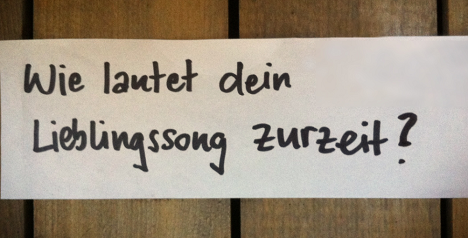 Wie lautet dein
Lieblingssong zurzeit?